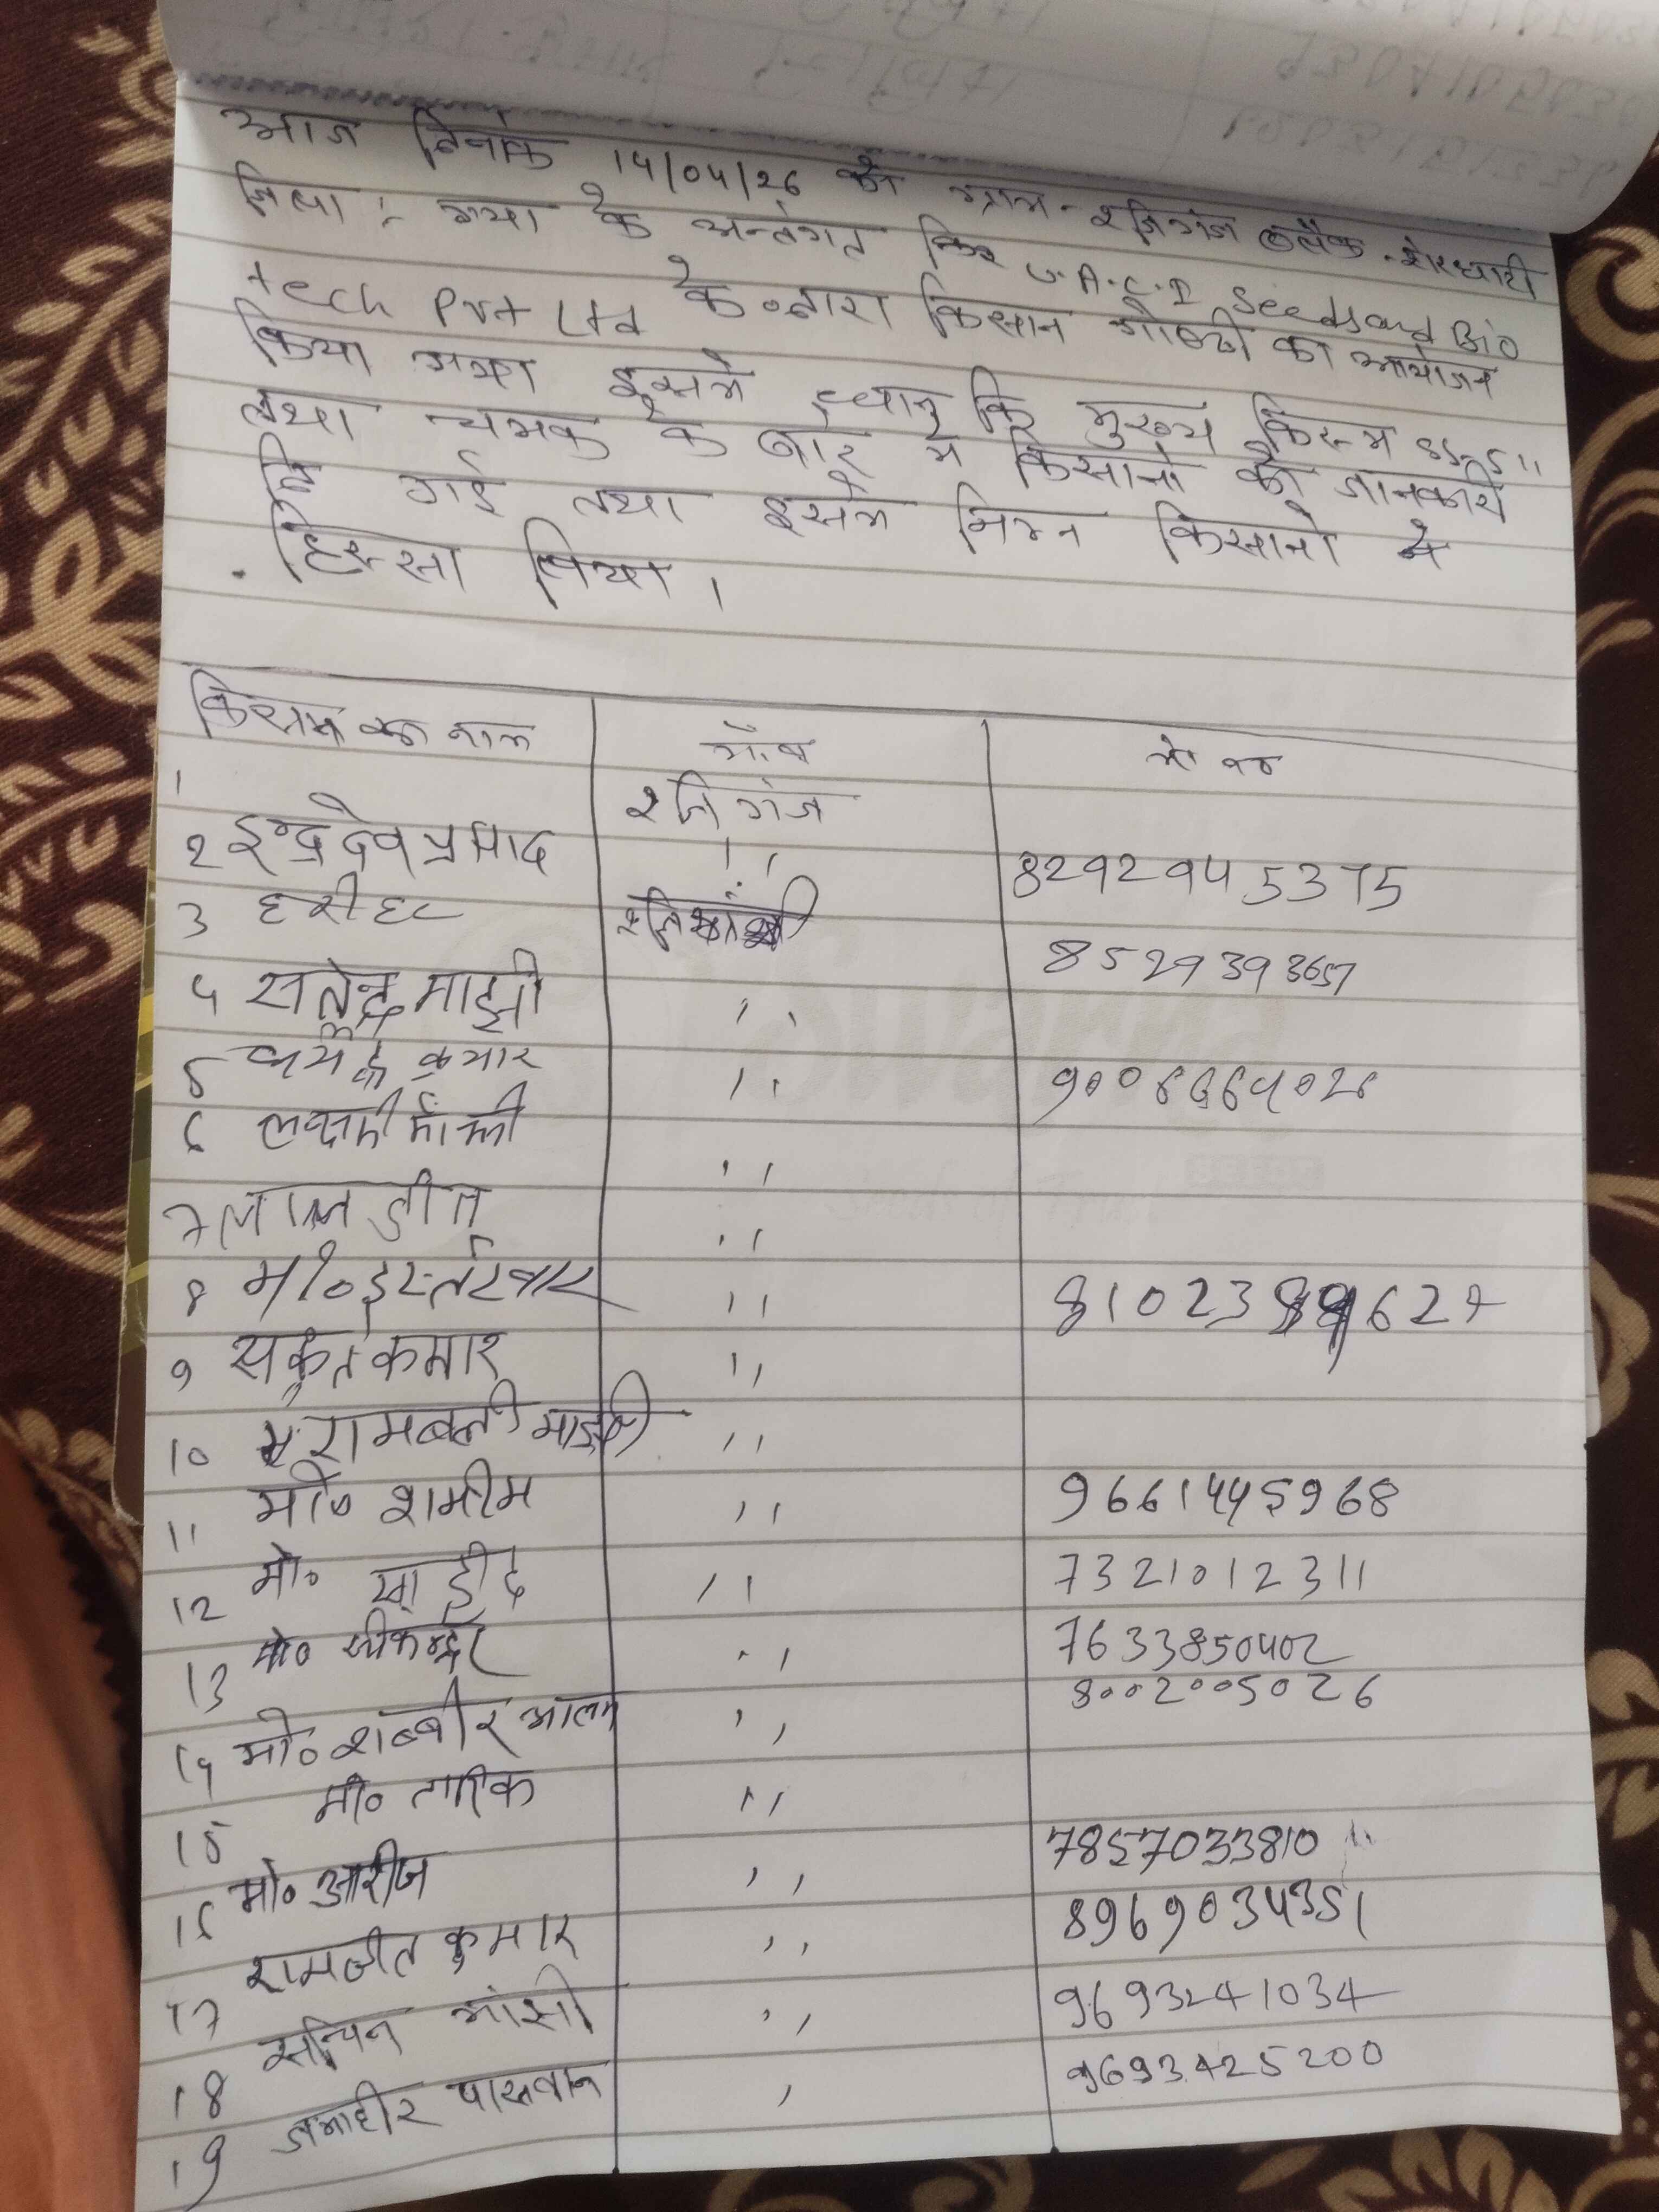 आज दिनांक 14/04/26 को ग्राम - रनिगंज ब्लौक - शेरघाटी
जिला :- गया के अन्तर्गत U.A.C.I Seeds and Bio
tech Pvt Ltd के द्वारा किसान गोष्ठी का आयोजन
किया गया इसमे धान कि मुख्य किस्म
तथा चमक के बारे मे किसानो को जानकारी
दि गई तथा इसमे निम्न किसानो ने
हिस्सा लिया ।
किसान का नाम गाँव मो न०
1 रनिगंज
2 इन्द्रदेव प्रसाद ,, 8292945375
3 हरीहर
8529393657
4 सत्येन्द्र माझी ,,
5 कुमार ,, 9006664026
6 लक्ष्मी माँझी ,,
7 लालजीत ,,
8 मो० ,, 8102389627
9 कुमार ,,
10 रामबली माझी ,,
11 मो० शमीम ,, 9661445968
12 मो० साहीद ,, 7321012311
13 मो० सीकन्दर ,, 7633850402
14 मो० शब्बीर आलम ,, 8002005026
15 मो० तारिक ,,
16 मो० आरीज ,, 7857033810
17 रामजीत कुमार ,, 8969034351
18 सचिन मांझी ,, 9693241034
19 जमाहीर पासवान , 9693425200